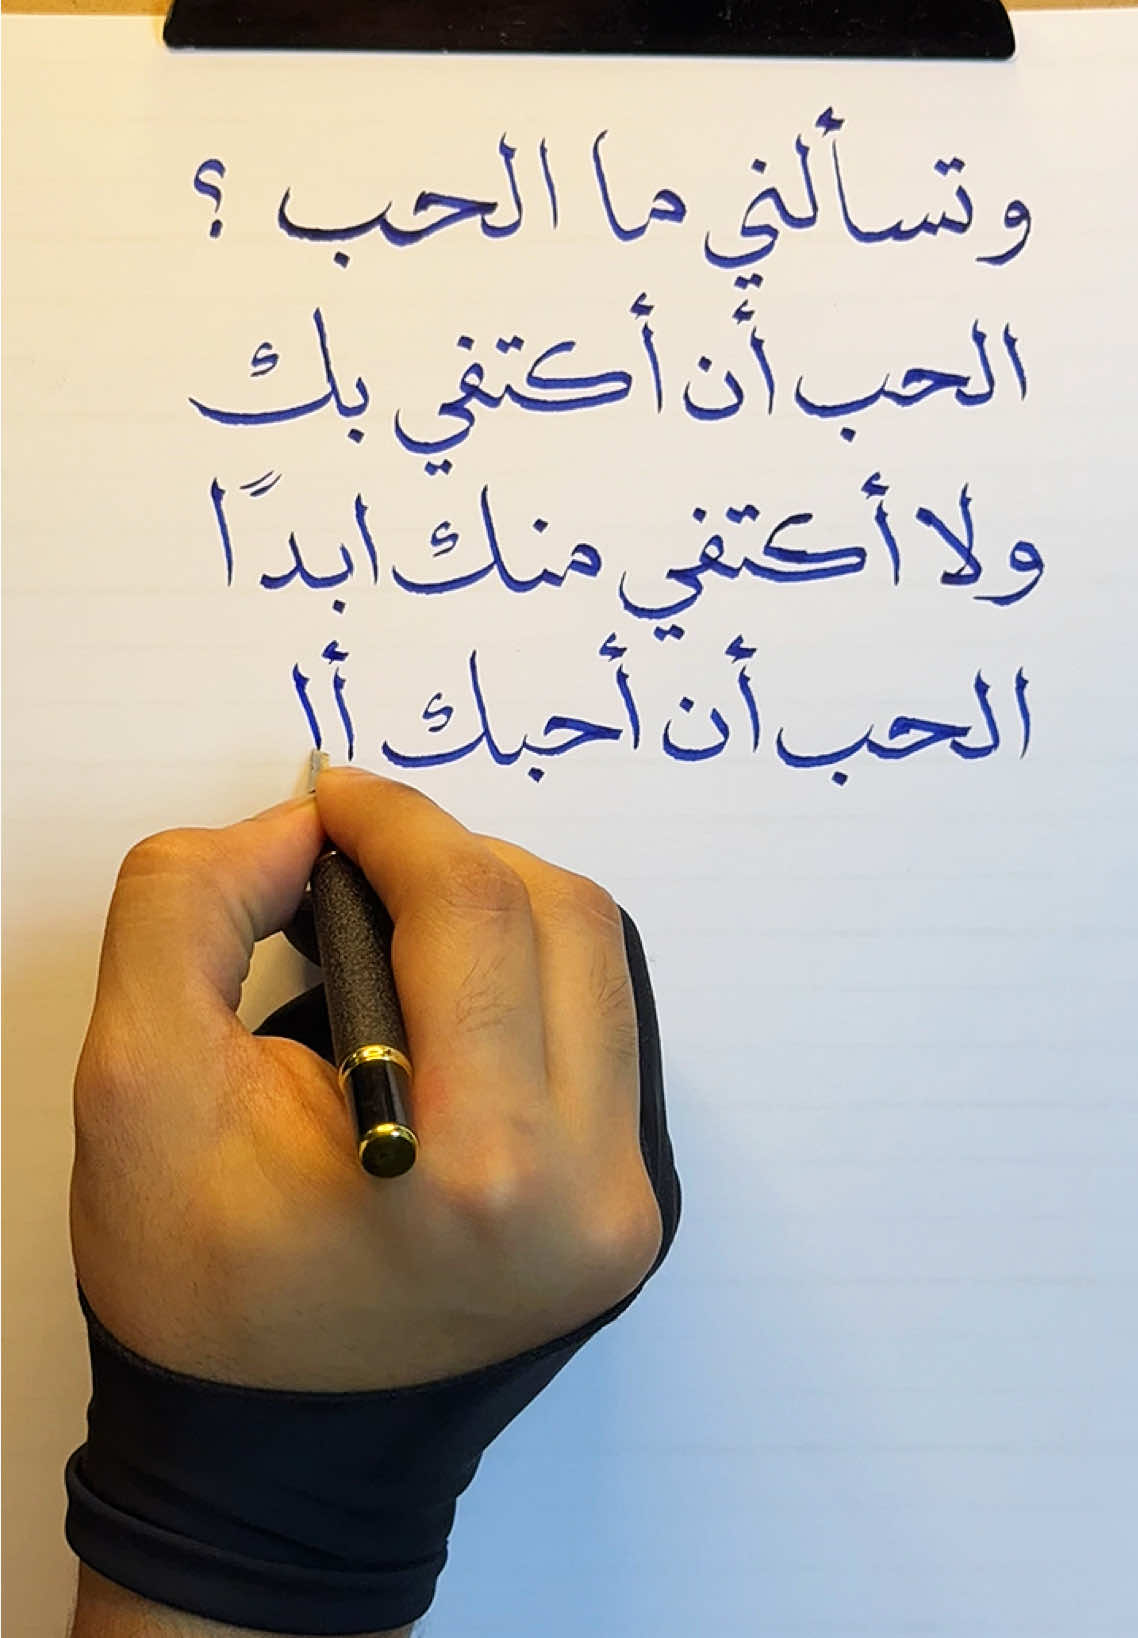 وتسألني ما الحب ؟
الحب أن أكتفي بك
ولا أكتفي منك ابدًا
الحب أن أحبك